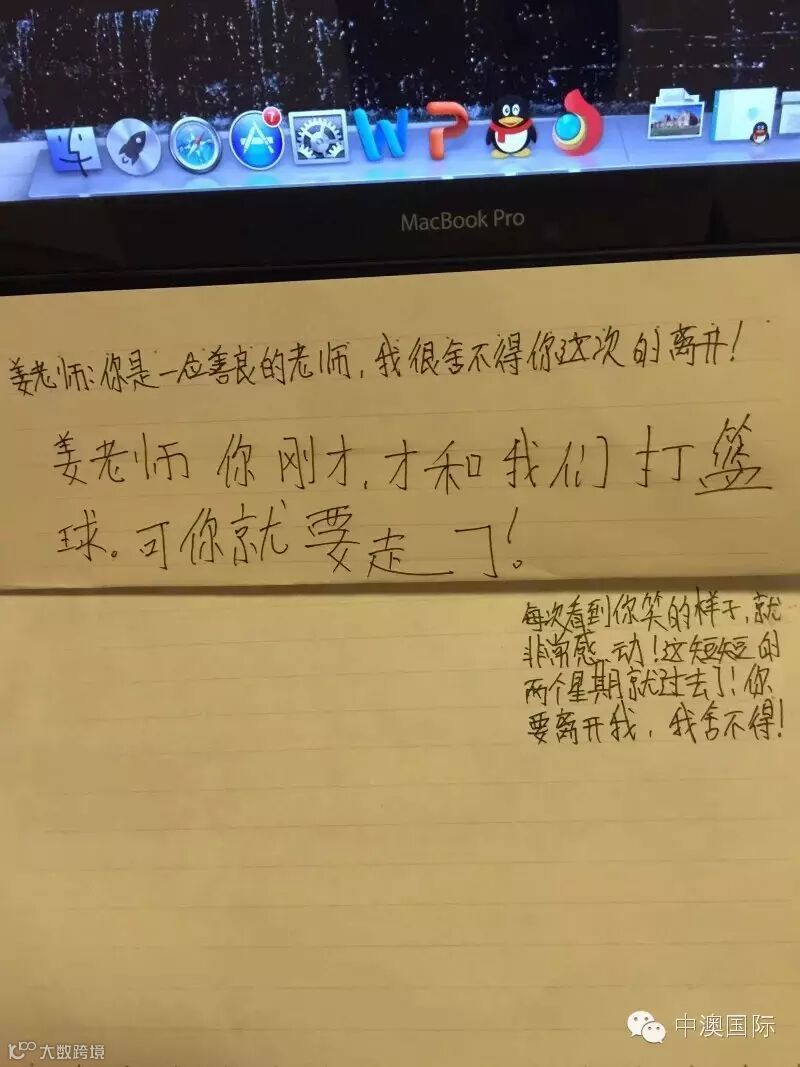 1
W
P
MacBook Pro
姜老师:你是一位善良的老师,我很舍不得你这次的离开!
姜老师 你刚才,才和我们打篮
球。可你就要走了!
每次看到你笑的样子,就
非常感动!这短短的
两个星期就过去了!你
要离开我,我舍不得!
中澳国际
大数跨境